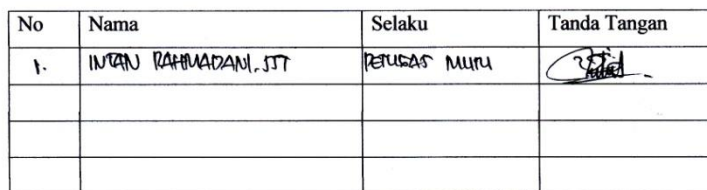 No Nama Selaku Tanda Tangan
1. INTAN RAHMADANI. SST PETUGAS MUTU